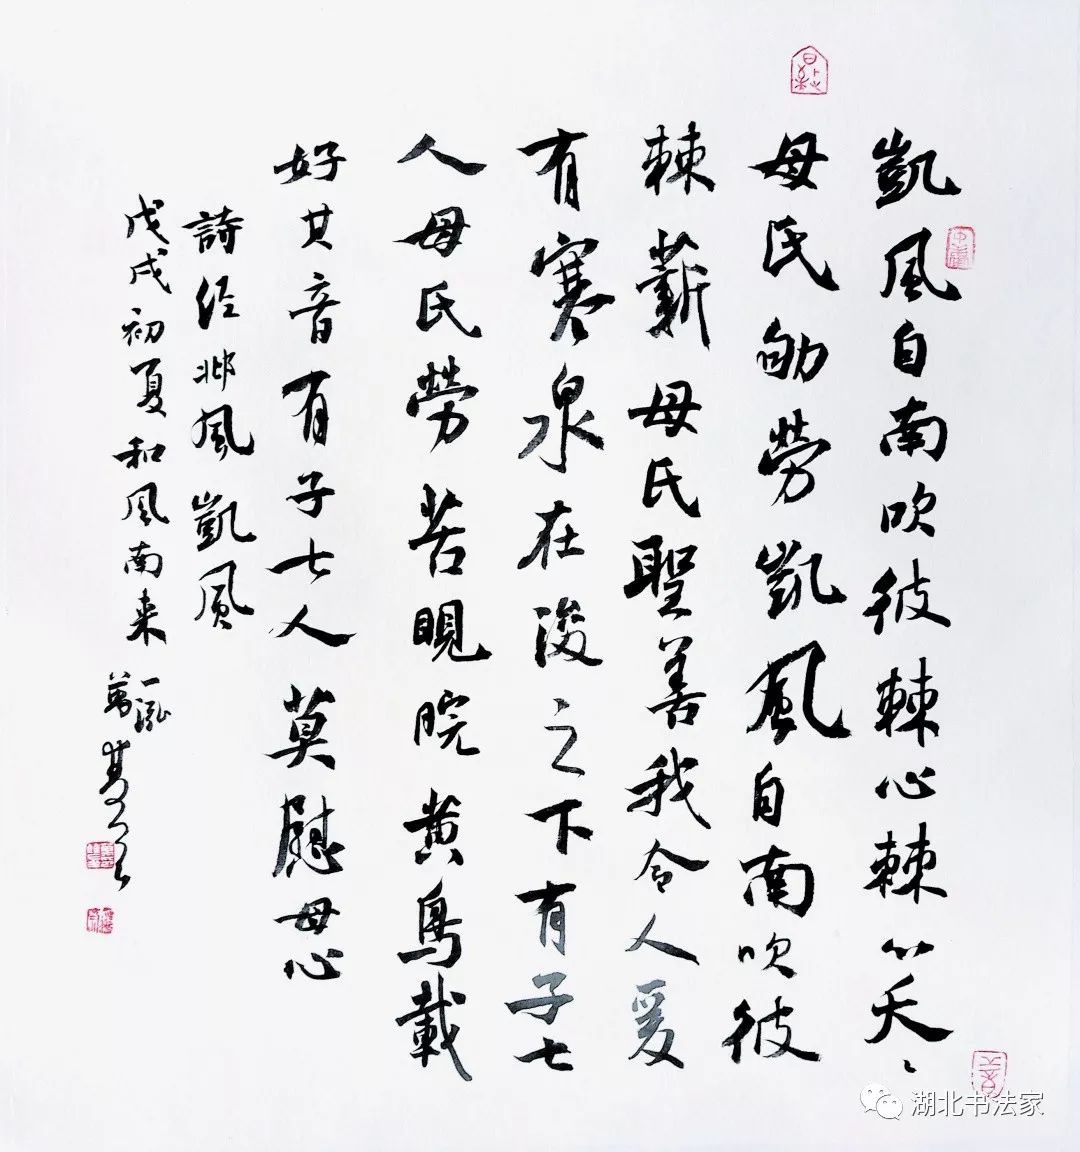 凱風自南吹彼棘心棘心夭〻
母氏劬勞凱風自南吹彼
棘薪母氏聖善我令人爰
有寒泉在浚之下有子七
人母氏勞苦睍睆黄鳥載
好其音有子七人莫慰母心
詩经邶風凱風
戊戌初夏和風南来
一泓
萬
湖北书法家